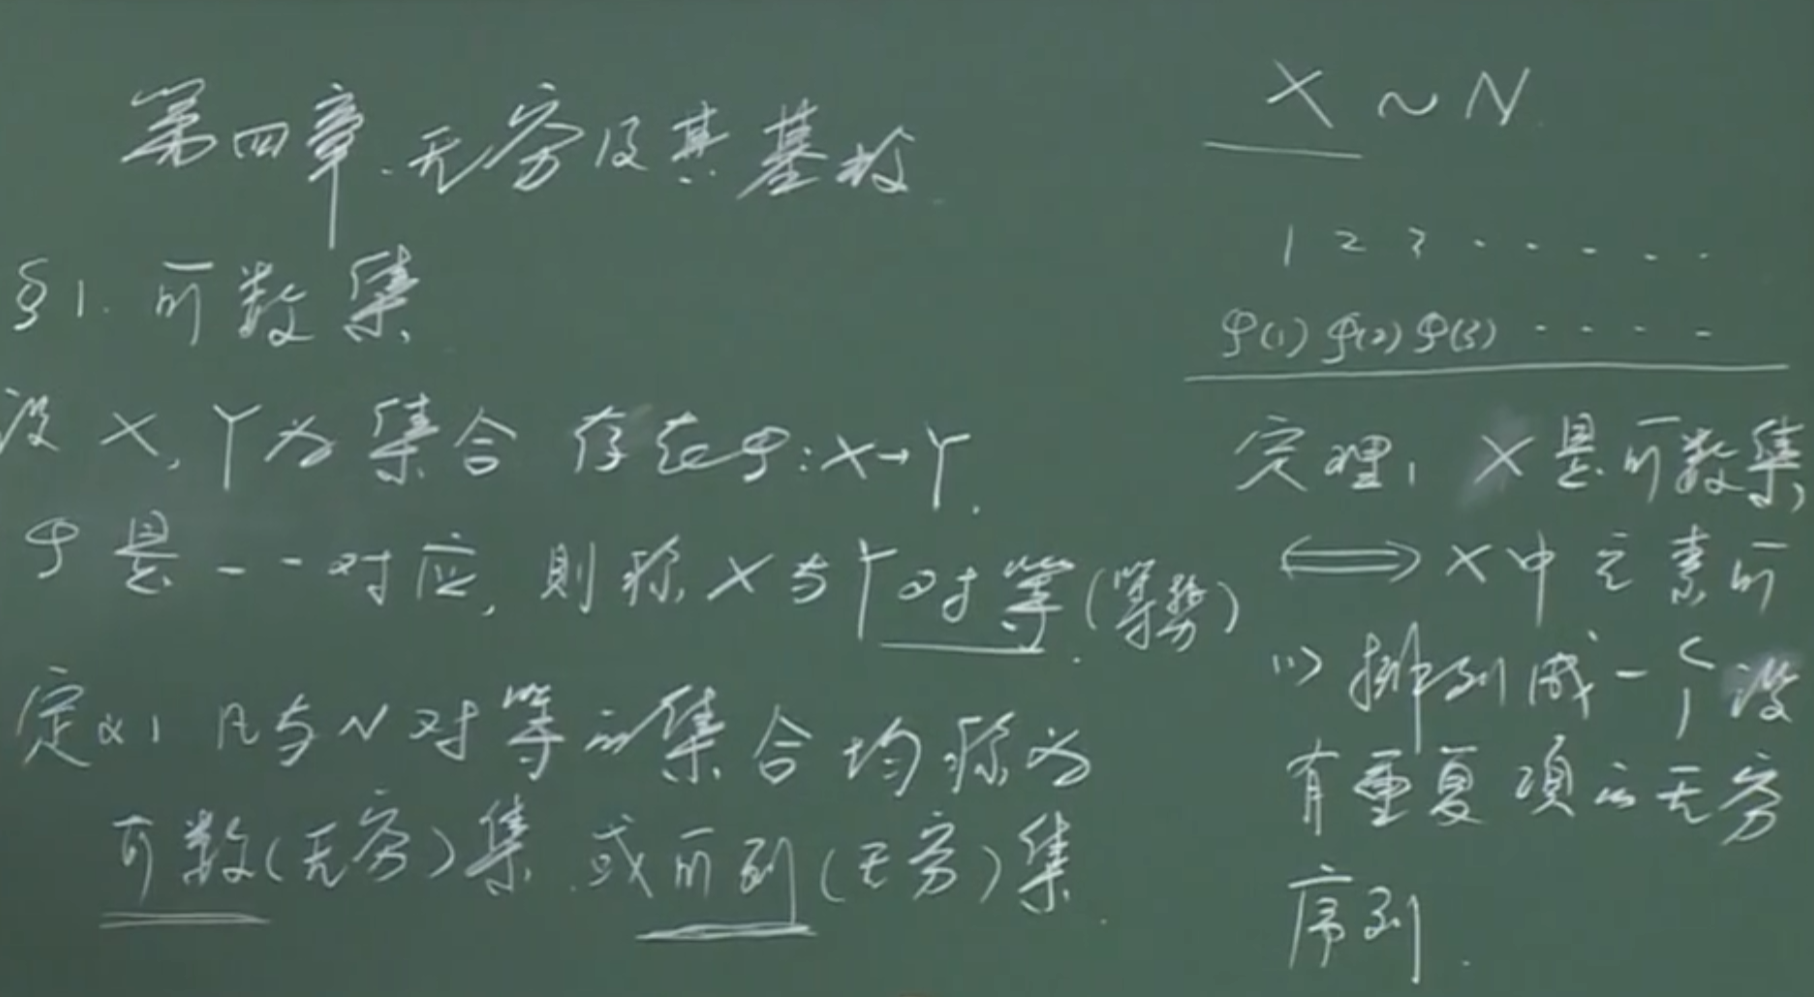 第四章.无穷及其基数
§1.可数集
设X,Y为集合 存在φ:X→Y.
φ是一一对应,則称X与Y对等(等势)
定义1 凡与N对等的集合均称为
可数(无穷)集.或可列(无穷)集.
X ~ N
1 2 3 · · · · · ·
φ(1) φ(2) φ(3) · · · · ·
定理1 X是可数集
⟺ X中元素可
以排列成一个没
有重复项的无穷
序列.